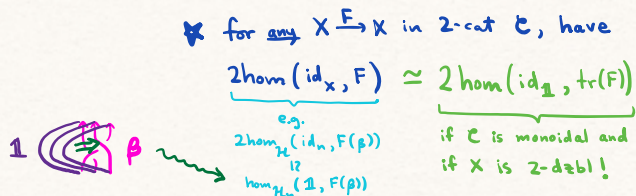 ★ for any X F→ X in 2-cat C, have
2hom(id_X, F) ≃ 2hom(id_𝟙, tr(F))
e.g.
2hom_H(id_n, F(β))
≅
hom_{H_n}(𝟙, F(β))
if C is monoidal and
if X is 2-dzbl!
𝟙 β